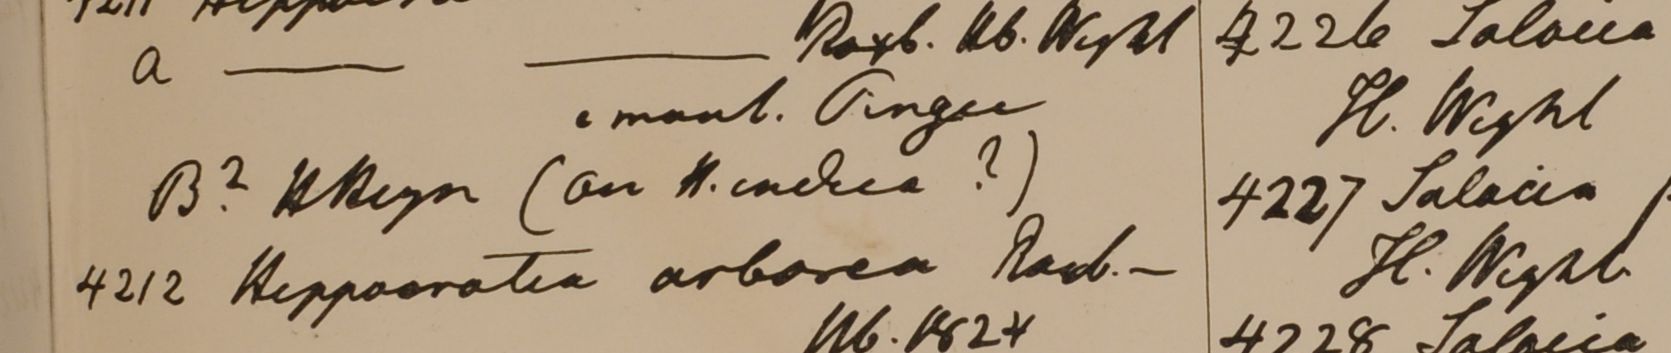 4211 Hippocra
a — — Roxb. Hb. Wight
e mont. Pingee
B? H Heyn (an H. indica ?)
4212 Hippocratea arborea Roxb. —
Hb. 1824
4226 Salacia
H. Wight
4227 Salacia
H. Wight
4228 Salacia